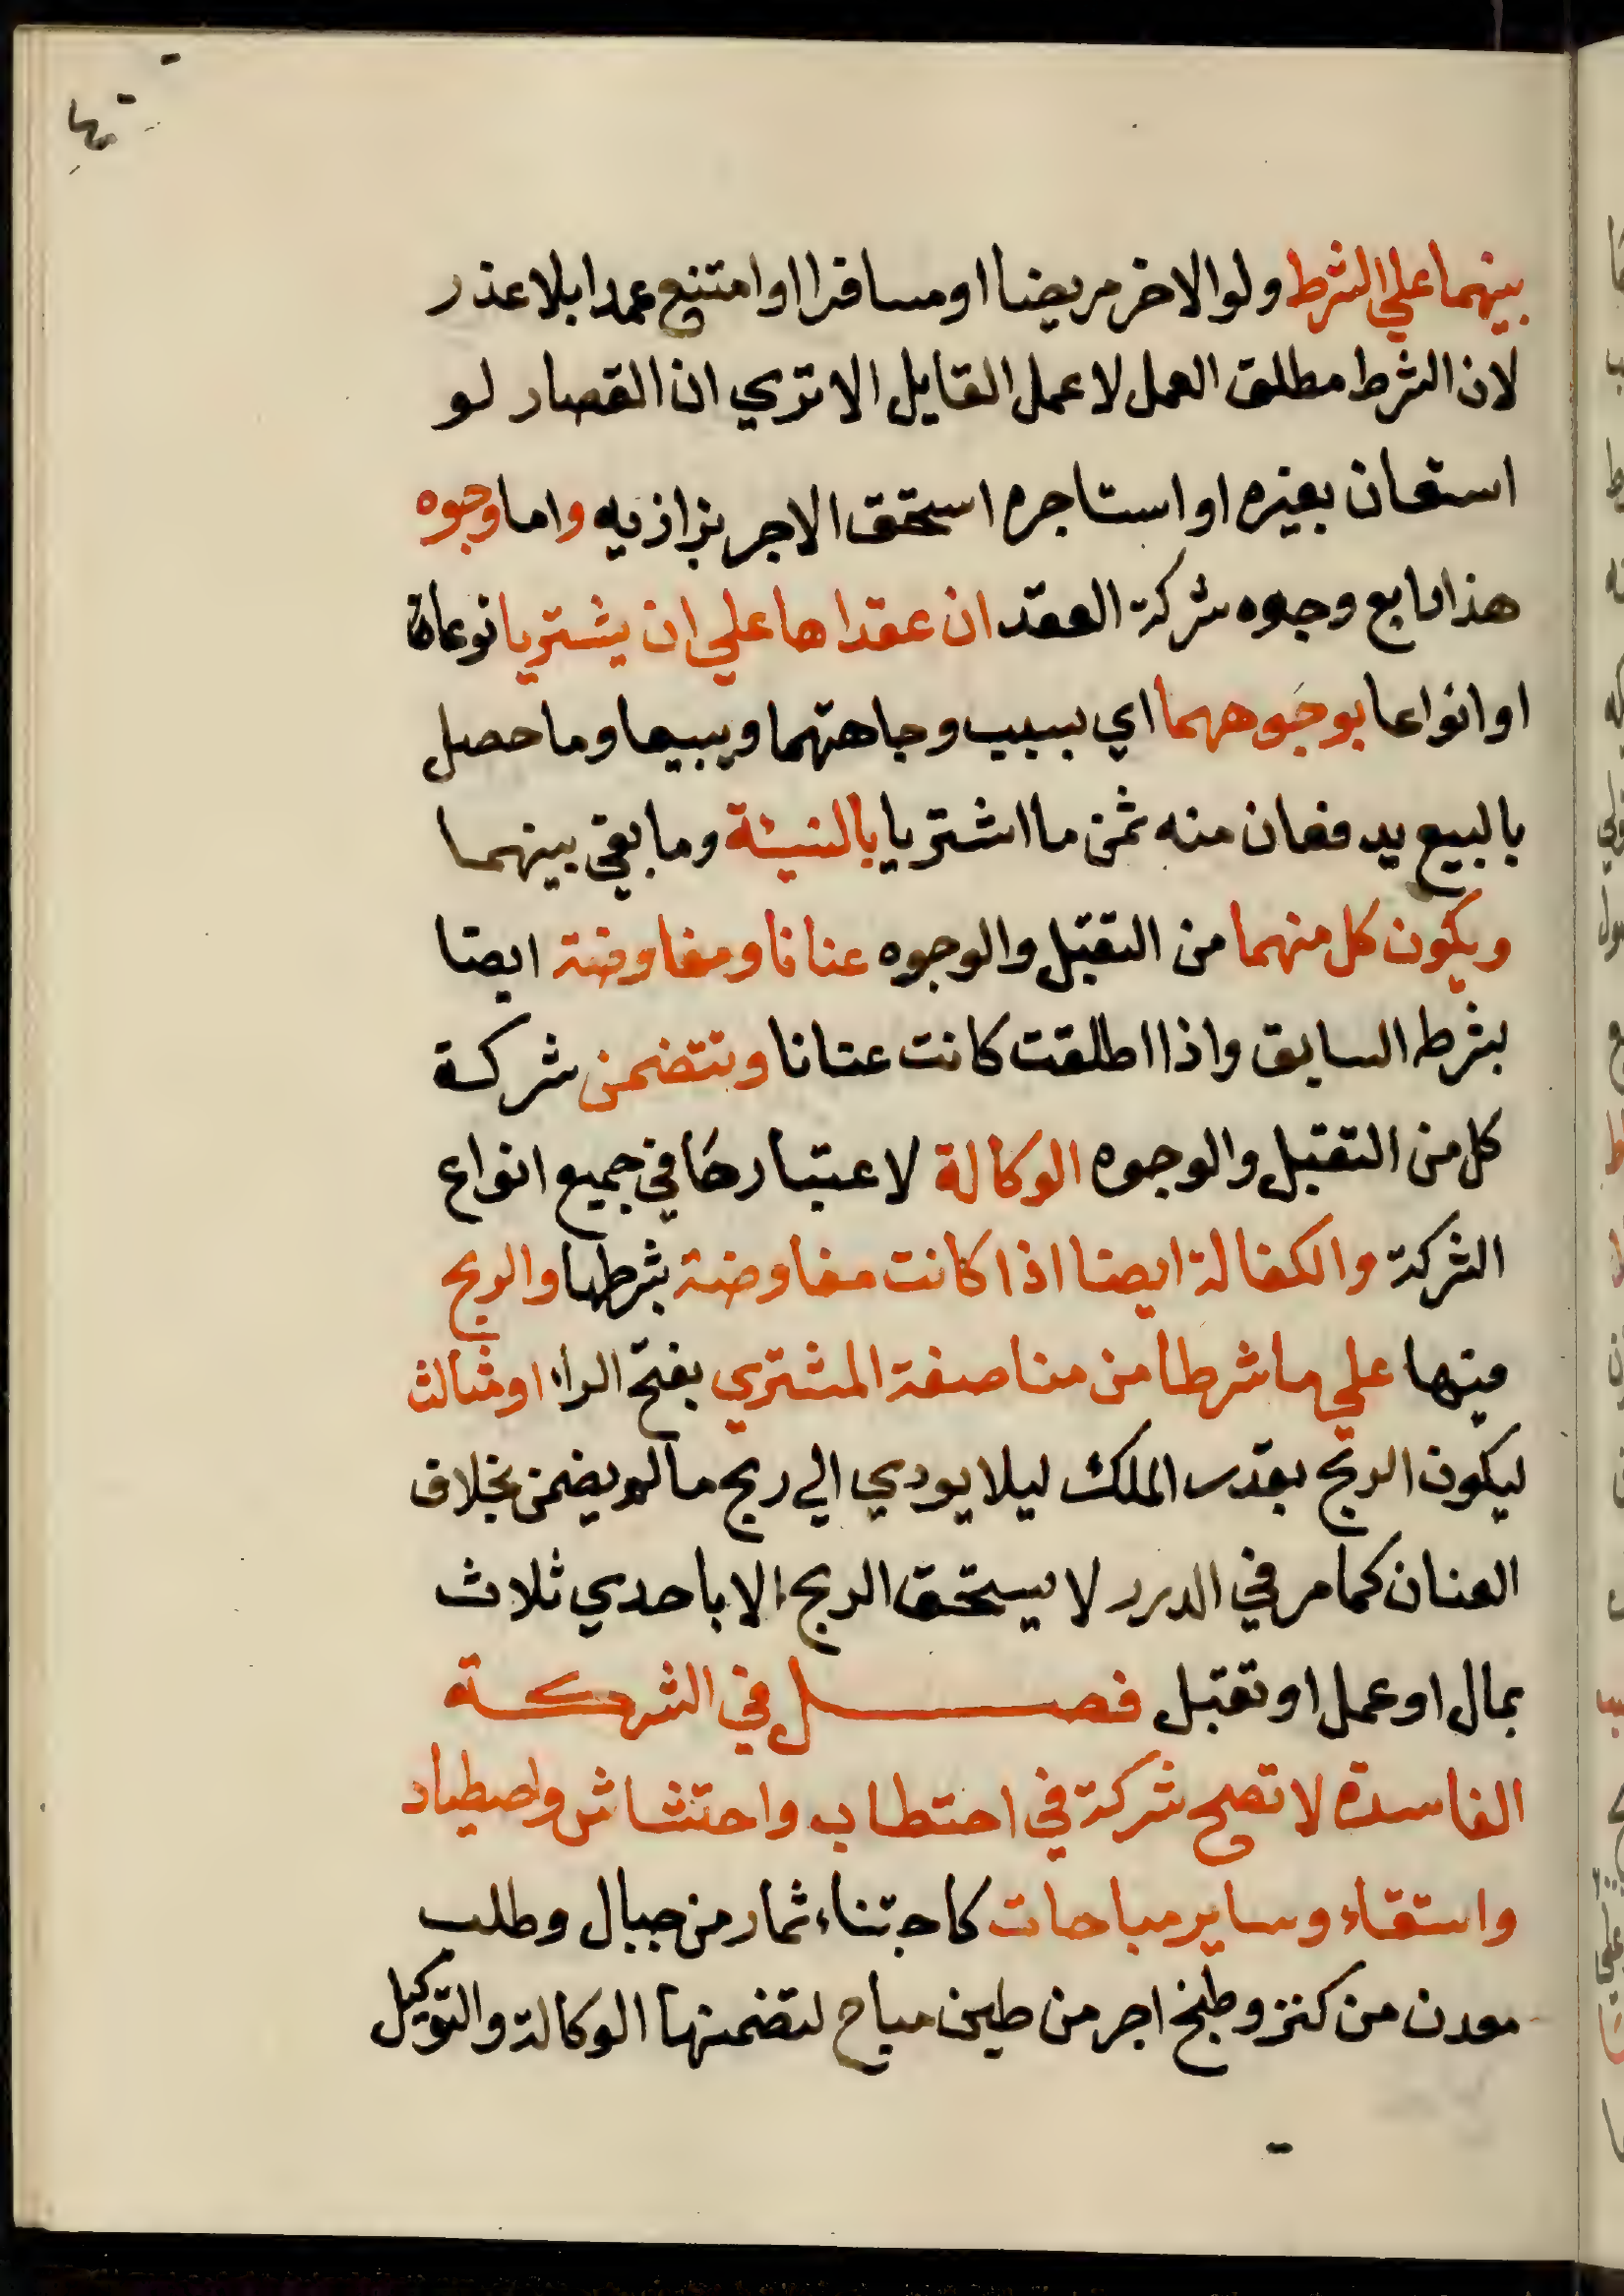 بينهما علي الشرط ولو الاخر مريضا او مسافرا او امتنع عمدا بلا عذر
لان الشرط مطلق العمل لا عمل القايل الا تري ان القصار لو
استعان بغيره او استاجره استحق الاجر بزازيه واما وجوه
هذا رابع وجوه شركة العقد ان عقداها علي ان يشتريا نوعا
او انواعا بوجوههما اي بسبب وجاهتهما ويبيعا وما حصل
بالبيع يدفعان منه ثمن ما اشتريا بالنسيئة وما بقي بينهما
ويكون كل منهما من التقبل والوجوه عنانا ومفاوضة ايضا
بشرط السابق واذا اطلقت كانت عنانا وتتضمن شركة
كل من التقبل والوجوه الوكالة لاعتبارها في جميع انواع
الشركة والكفالة ايضا اذا كانت مفاوضة بشرطها والربح
فيها علي ما شرطا من مناصفة المشتري بفتح الراء او مثالثه
ليكون الربح بقدر الملك ليلا يودي الي ربح ما لم يضمن بخلاف
العنان كما مر في الدرر لا يستحق الربح الا باحدي ثلاث
بمال او عمل او تقبل فصل في الشركة
الفاسدة لا تصح شركة في احتطاب واحتشاش واصطياد
واستقاء وساير مباحات كاجتناء ثمار من جبال وطلب
معدن من كنز وطبخ اجر من طين مباح لتضمنها الوكالة والتوكيل